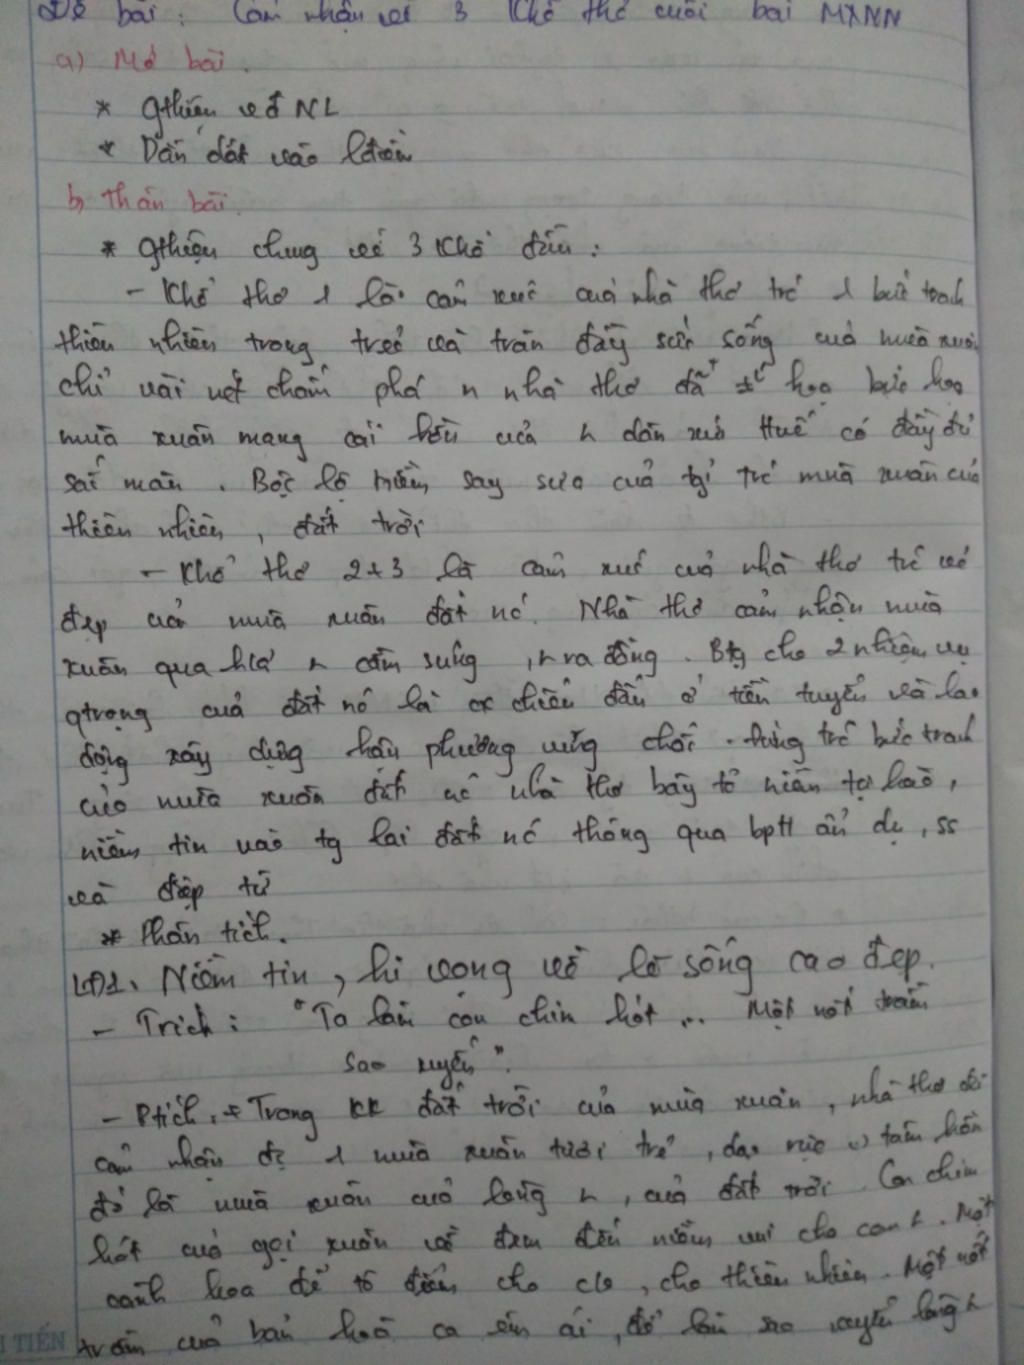 Đề bài: Cảm nhận về 3 khổ thơ cuối bài MXNN
a) Mở bài.
* Gthiệu vđ NL
* Dẫn dắt vào
b, Thân bài.
* Gthiệu chung về 3 khổ đầu:
- Khổ thơ 1 là cảm xúc của nhà thơ trc 1 bức tranh
thiên nhiên trong trẻo và tràn đầy sức sống của mùa xuân
chỉ vài nét chấm phá nhà thơ đã hoạ bức hoạ
mùa xuân mang cái hồn của dân xứ Huế có đầy đủ
sắc màu. Bộc lộ niềm say sưa của tgỉ trc mùa xuân của
thiên nhiên, đất trời
- Khổ thơ 2+3 là cảm xúc của nhà thơ trc vẻ
đẹp của mùa xuân đất nc. Nhà thơ cảm nhận mùa
xuân qua cầm súng, ra đồng. Btg cho 2 nhiệm vụ
qtrọng của đất nc là chiến đấu ở tiền tuyến và lao
động xây dựng hậu phương vững chắc. Đứng trc bức tranh
của mùa xuân đất nc nhà thơ bày tỏ niềm tự hào,
niềm tin vào tg lai đất nc thông qua bptt ẩn dụ, ss
và điệp từ
* Phân tích.
LĐ1. Niềm tin, hi vọng về lẽ sống cao đẹp.
- Trích: "Ta làm con chim hót ... Một nốt trầm
sao xuyến".
- Ptích: + Trong kk đất trời của mùa xuân, nhà thơ đã
cảm nhận đc 1 mùa xuân tươi trẻ, dạo rực tâm hồn
đó là mùa xuân của lòng, của đất trời. Con chim
hót của gọi xuân về đem đến niềm vui cho con. Một
cành hoa để tô điểm cho, cho thiên nhiên. Một nốt
trầm của bản hoà ca êm ái, để làm sao xuyến lòng
TIẾN